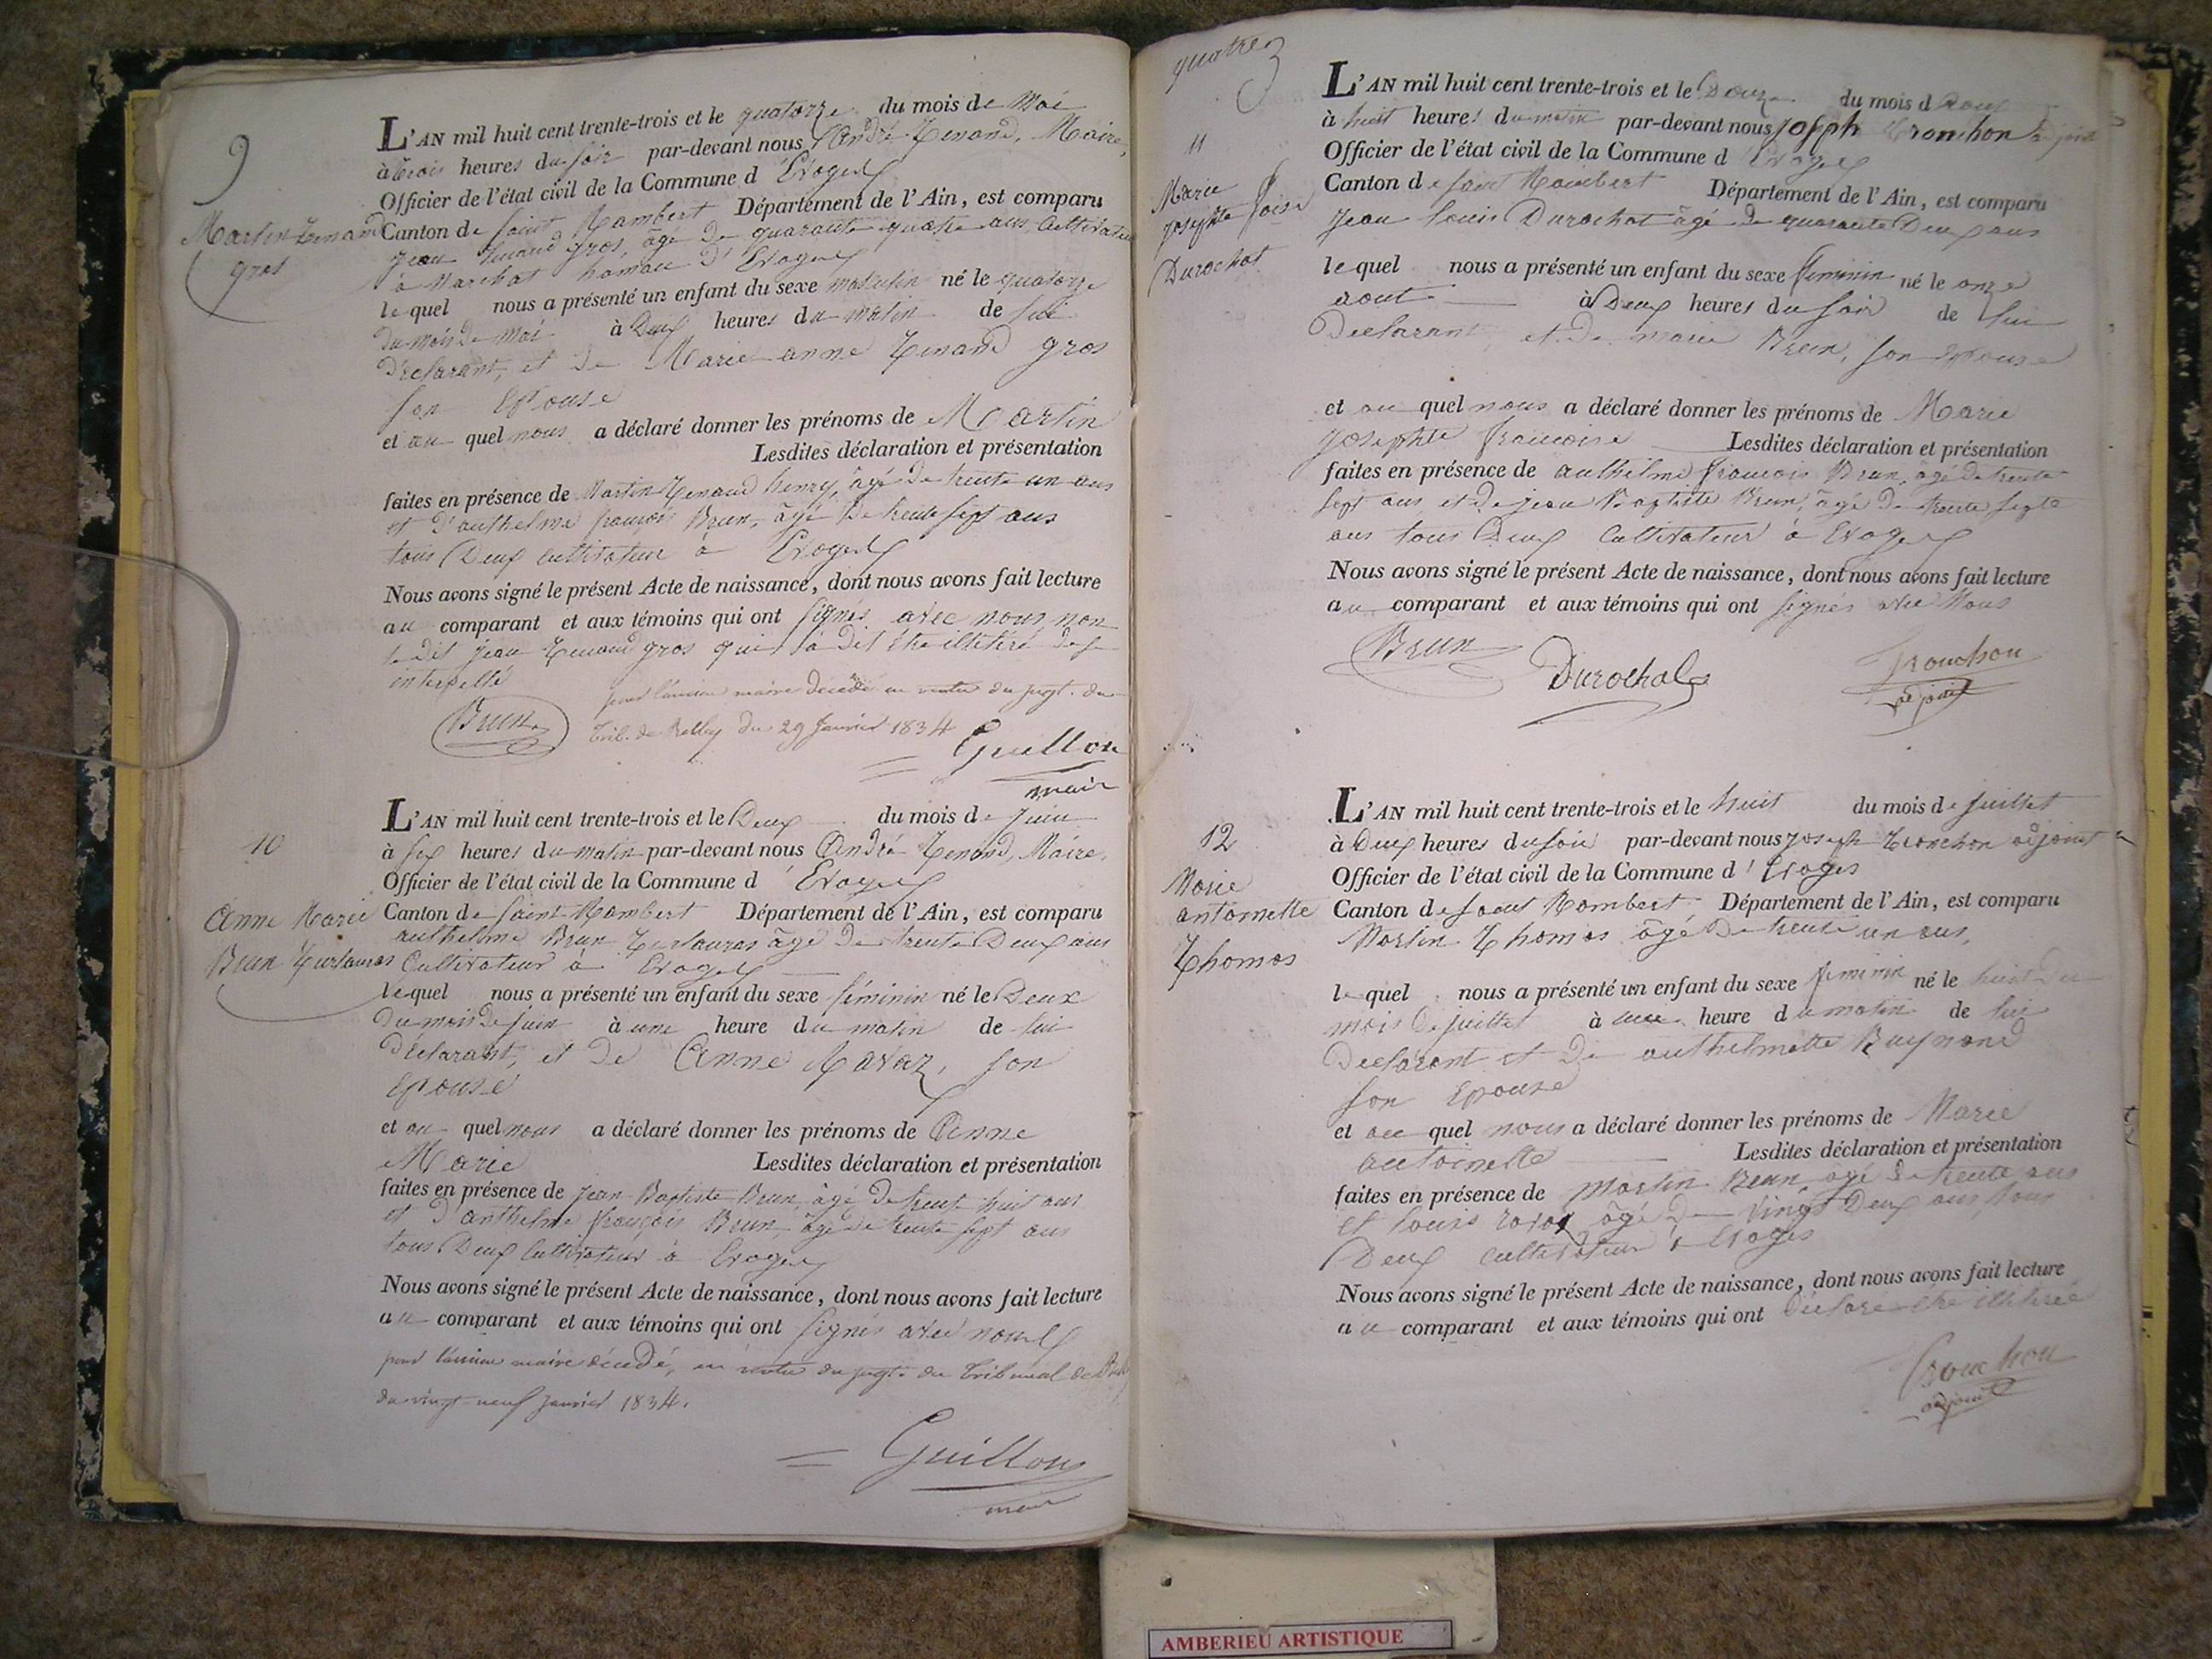 9
Martin Tenand
gros
L'AN mil huit cent trente-trois et le quatorze du mois de Mai
à trois heures du soir par-devant nous André Tenand, Maire,
Officier de l'état civil de la Commune d'Evoges
Canton de Saint Rambert Département de l'Ain, est comparu
jean tenand gros, âgé de quarante quatre ans, Cultivateur
à Marchat hamau d'Evoges
lequel nous a présenté un enfant du sexe masculin né le quatorze
du mois de Mai à Deux heures du matin de lui
Déclarant, et de Marie anne Tenand gros
son Epouse
et au quel nous a déclaré donner les prénoms de Martin
Lesdites déclaration et présentation
faites en présence de Martin Tenand henry, âgé de trente un ans
et d'anthelme françois Brun, âgé de trente sept ans
tous Deux cultivateur à Evoges
Nous avons signé le présent Acte de naissance, dont nous avons fait lecture
au comparant et aux témoins qui ont signés avec nous, non
le dit jean Tenand gros qui à dit être illétéré de ce
interpellé
pour l'ancien maire décédé en vertu du jugt. du
Trib. de Belley du 29 Janvier 1834
Brun
Guillon
maire
10
Anne Marie
Brun Turlauras
L'AN mil huit cent trente-trois et le Deux du mois de juin
à six heures du matin par-devant nous André Tenand, Maire,
Officier de l'état civil de la Commune d'Evoges
Canton de Saint Rambert Département de l'Ain, est comparu
anthelme Brun Turlauras âgé de trente Deux ans
Cultivateur à Evoges
lequel nous a présenté un enfant du sexe féminin né le Deux
du mois de juin à une heure du matin de lui
Déclarant, et de Anne Ravaz, son
Epouse
et au quel nous a déclaré donner les prénoms de Anne
Marie Lesdites déclaration et présentation
faites en présence de jean Baptiste Brun, âgé de trente huit ans
et d'anthelme françois Brun, âgé de trente sept ans
tous Deux Cultivateur à Evoges
Nous avons signé le présent Acte de naissance, dont nous avons fait lecture
au comparant et aux témoins qui ont signés avec nous
pour l'ancien maire décédé, en vertu du jugt. du Tribunal de
du vingt-neuf janvier 1834.
Guillon
maire
quatre
11
Marie
josephte
Durochat
L'AN mil huit cent trente-trois et le Douze du mois d'Aout
à huit heures du matin par-devant nous joseph Tronchon adjoint
Officier de l'état civil de la Commune d'Evoges
Canton de saint Rambert Département de l'Ain, est comparu
jean louis Durochat âgé de quarante Deux ans
lequel nous a présenté un enfant du sexe féminin né le onze
aout à Deux heures du soir de lui
Déclarant, et de marie Brun, son épouse
et au quel nous a déclaré donner les prénoms de Marie
josephte françoise Lesdites déclaration et présentation
faites en présence de anthelme françois Brun, âgé de trente
sept ans et de jean Baptiste Brun, âgé de trente sept
ans tous Deux Cultivateur à Evoges
Nous avons signé le présent Acte de naissance, dont nous avons fait lecture
au comparant et aux témoins qui ont signés avec Nous
Brun
Durochat
Tronchon
adjoint
12
Marie
antoinette
Thomas
L'AN mil huit cent trente-trois et le huit du mois de juillet
à Deux heures du soir par-devant nous joseph Tronchon adjoint
Officier de l'état civil de la Commune d'Evoges
Canton de saint Rambert Département de l'Ain, est comparu
Martin Thomas âgé de trente un ans,
lequel nous a présenté un enfant du sexe féminin né le huit du
mois de juillet à une heure du matin de lui
Déclarant et de anthelmette Raynand
son Epouse
et au quel nous a déclaré donner les prénoms de Marie
antoinette Lesdites déclaration et présentation
faites en présence de martin Brun âgé de trente ans
et louis ravaz âgé de vingt Deux ans tous
Deux cultivateur à Evoges
Nous avons signé le présent Acte de naissance, dont nous avons fait lecture
au comparant et aux témoins qui ont déclaré être illitéré
Tronchon
adjoint
AMBERIEU ARTISTIQUE